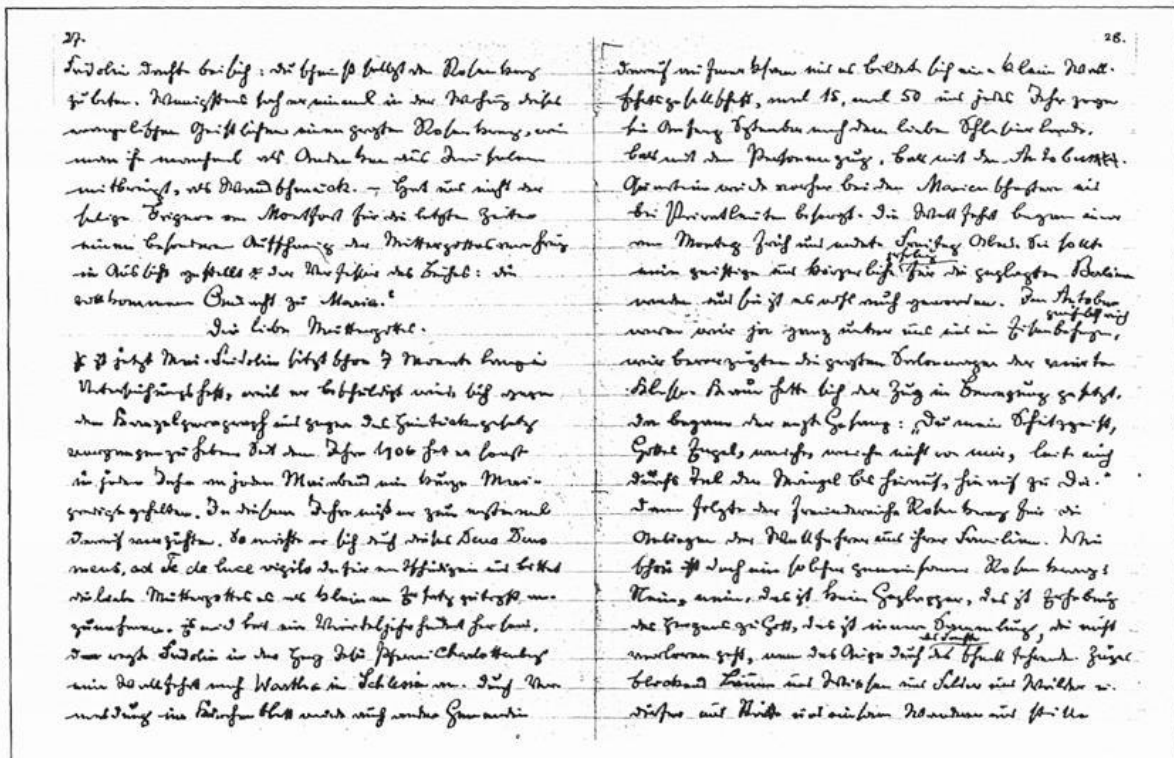 27.
Fridolin dachte bei sich: du scheinst selbst den Rosenkranz
zu beten. Wenigstens sah er einmal in der Wohnung dieses
evangelischen Geistlichen einen großen Rosenkranz, wie
man ihn manchmal als Andenken aus Jerusalem
mitbringt, als Wandschmuck. – Hat uns nicht der
selige Grignon von Montfort für die letzten Zeiten
einen besonderen Aufschwung der Muttergottesverehrung
in Aussicht gestellt, der Verfasser des Buches: die
vollkommene Andacht zu Maria?
Die liebe Muttergottes.
Es ist jetzt Mai. Fridolin sitzt schon 7 Monate lang in
Untersuchungshaft, weil er beschuldigt wird, sich gegen
den Kanzelparagraph und gegen das Heimtückegesetz
vergangen zu haben. Seit dem Jahre 1906 hat er sonst
in jedem Jahr an jedem Maiabend eine kurze Mai-
predigt gehalten. In diesem Jahre muß er zum ersten mal
darauf verzichten. So möchte er sich durch dieses Deus Deus
meus, ad Te de luce vigilo dafür entschädigen und bittet
die liebe Muttergottes es als kleinen Ersatz gütigst an-
zunehmen. Es wird bald ein Vierteljahrhundert her sein,
da regte Fridolin in der Herz Jesu Pfarrei Charlottenburg
eine Wallfahrt nach Wartha in Schlesien an. Durch Ver-
meldung im Kirchenblatt wurde auch andere Gemeinden
28.
darauf aufmerksam und es bildete sich eine kleine Wall-
fahrtsgesellschaft, mal 15, mal 50 und jedes Jahr gegen
Anfang September nach dem lieben Schlesierlande,
bald mit dem Personenzug, bald mit dem Autobus.
Quartier wurde vorher bei den Marienschwestern und
bei Privatleuten besorgt. Die Wallfahrt begann immer
am Montag Früh und endete Freitag Abend. Sie sollte
eine geistige und körperliche Erholung für die geplagten Berliner
werden und sie ist es wohl auch geworden. Im Autobus
waren wir ja ganz unter uns und im Eisenbahnzug,
wir bevorzugten die großen Salonwagen der vierten
Klasse. Kaum hatte sich der Zug in Bewegung gesetzt,
da begann der erste Gesang: „Du mein Schutzgeist,
Gottes Engel, weiche, weiche nicht von mir, leite mich
durchs Tal der Mängel bis hinauf, hinauf zu Dir."
Dann folgte der freudenreiche Rosenkranz für die
Anliegen der Wallfahrer und ihrer Familien. Wie
schön ist doch ein solcher gemeinsamer Rosenkranz!
Nein, nein, das ist kein Geplapper, das ist Erhebung
des Herzens zu Gott, das ist innere Sammlung, die nicht
verloren geht, wenn das Auge durch das Fenster des schnell fahrenden Zuges
blickend Bäume und Wiesen und Felder und Wälder u.
Dörfer und Städte und einsam Wandern und stille